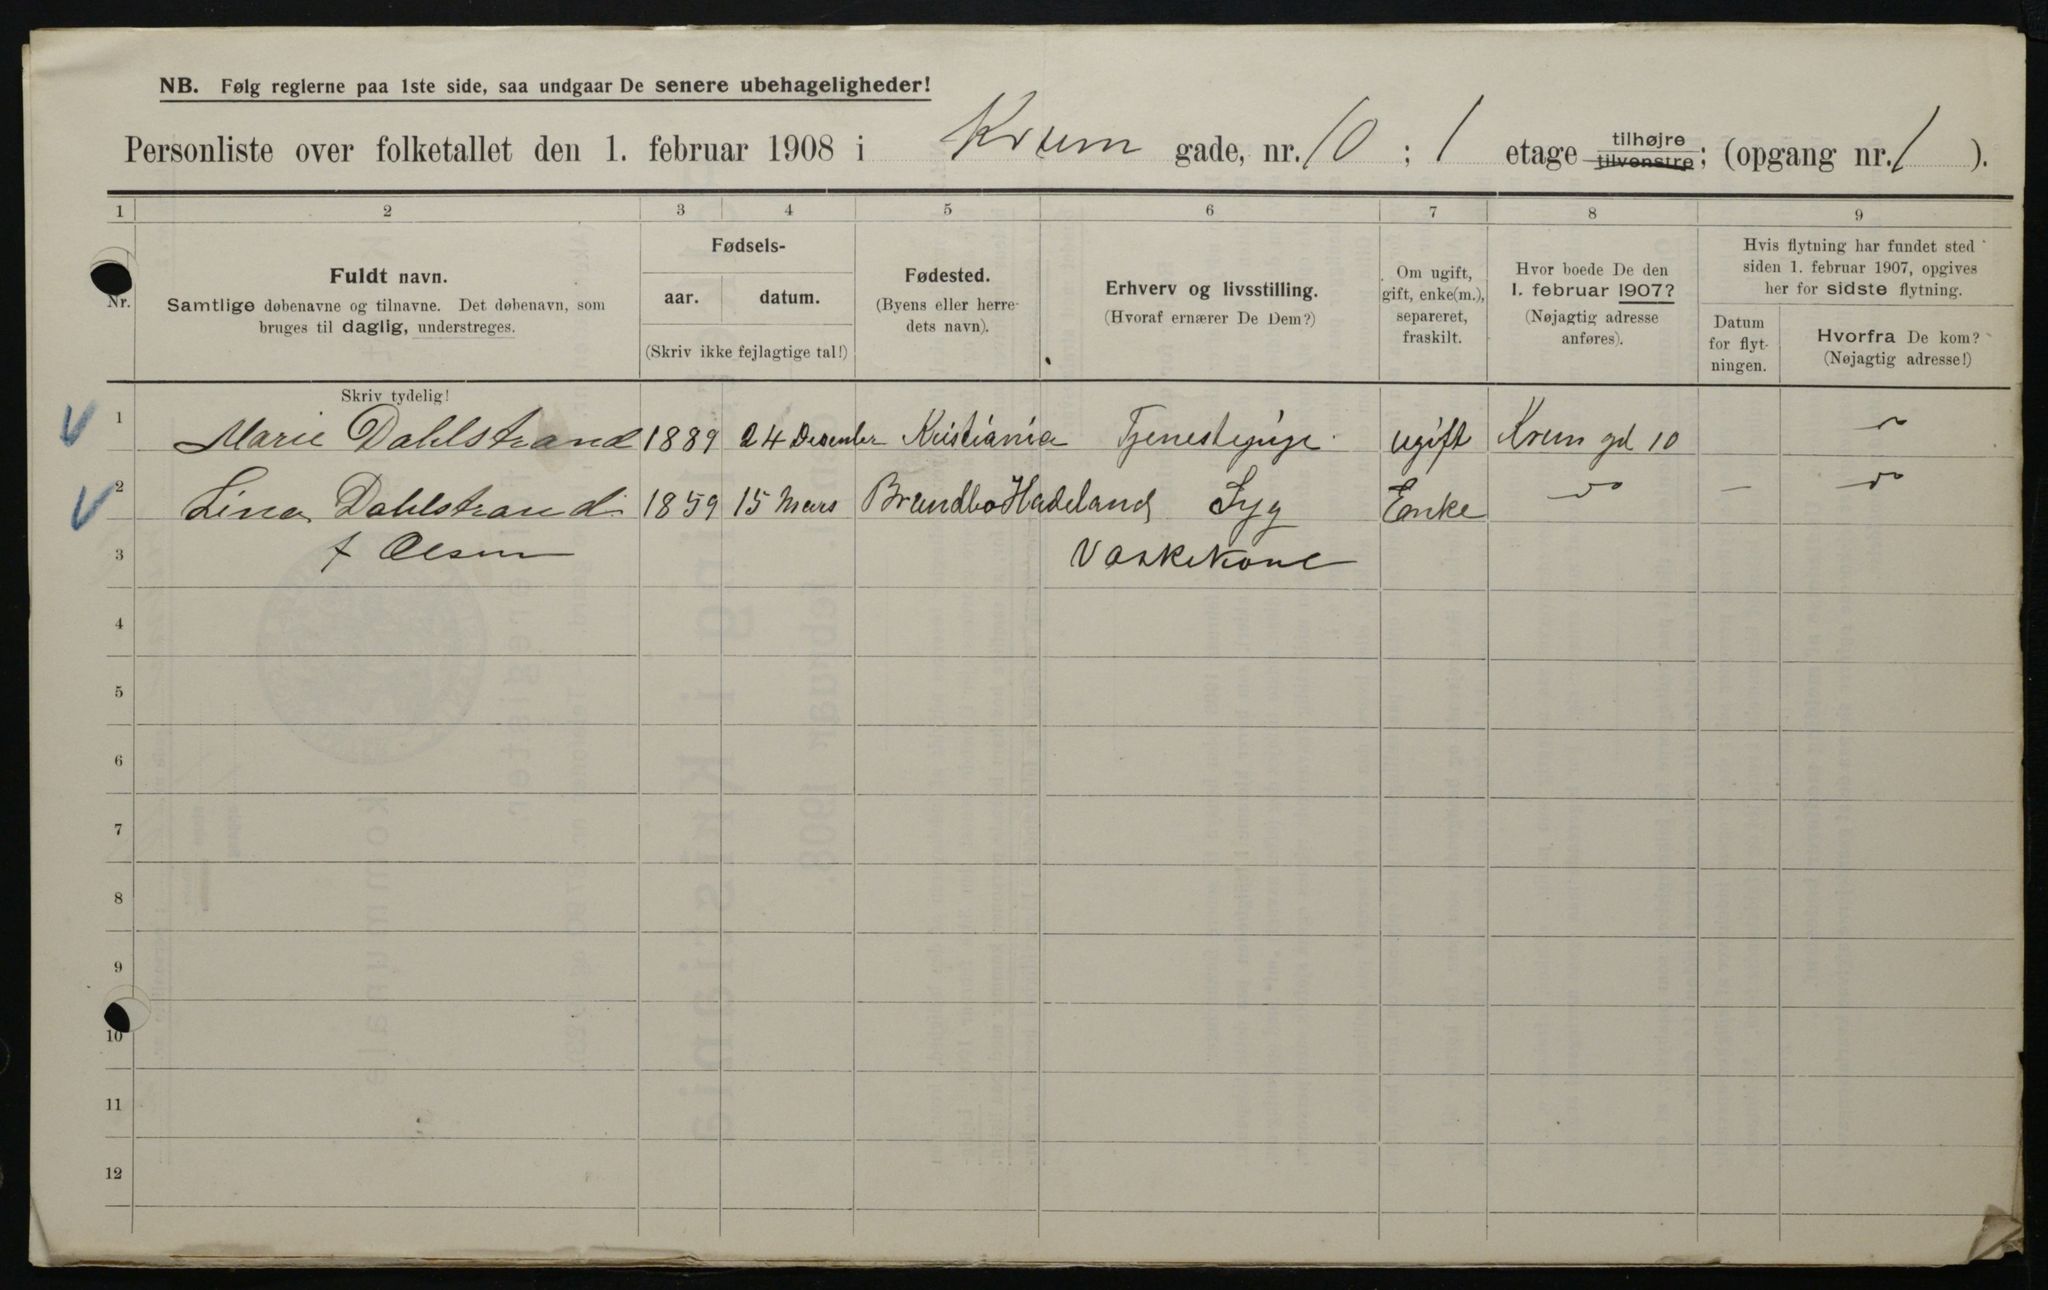 NB. Følg reglerne paa 1ste side, saa undgaar De senere ubehageligheder!
Personliste over folketallet den 1. februar 1908 i Krum gade, nr. 10 ; 1 etage tilhøjre tilvenstre ; (opgang nr. 1 ).
1 2 3 4 5 6 7 8 9
Nr.
Fuldt navn.
Samtlige døbenavne og tilnavne. Det døbenavn, som
bruges til daglig, understreges.
Fødsels-
aar. datum.
(Skriv ikke fejlagtige tal!)
Fødested.
(Byens eller herre-
dets navn).
Erhverv og livsstilling.
(Hvoraf ernærer De Dem?)
Om ugift,
gift, enke(m.),
separeret,
fraskilt.
Hvor boede De den
1. februar 1907?
(Nøjagtig adresse
anføres).
Hvis flytning har fundet sted
siden 1. februar 1907, opgives
her for sidste flytning.
Datum
for flyt-
ningen.
Hvorfra De kom?
(Nøjagtig adresse!)
Skriv tydelig!
1 Marie Dahlstrand 1889 24 Desember Kristiania Tjenestepige ugift Krum gd 10
2 Lina Dahlstrand 1859 15 Mars Hadeland Syg Enke —
3 f Olsen Vaskekone
4
5
6
7
8
9
10
11
12